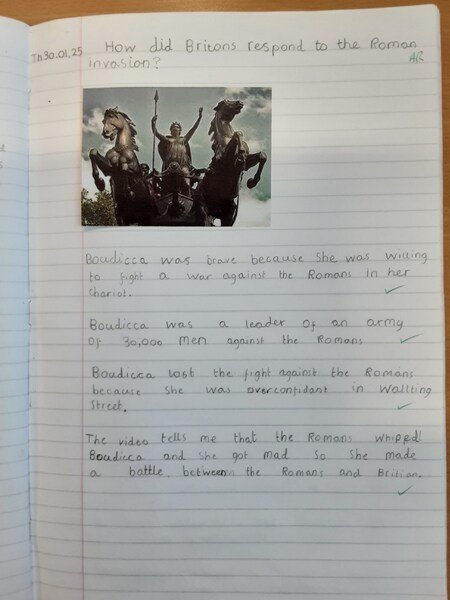 Th.30.01.25 How did Britons respond to the Roman
invasion?
AR
Boudicca was brave because She was willing
to fight a war against the Romans in her
chariot.
Boudicca was a leader of an army
of 30,000 men against the Romans
Boudicca lost the fight against the Romans
because She was overconfidant in Wallting
Street.
The video tells me that the Romans whipped
Boudicca and She got mad So She made
a battle between the Romans and Britian.